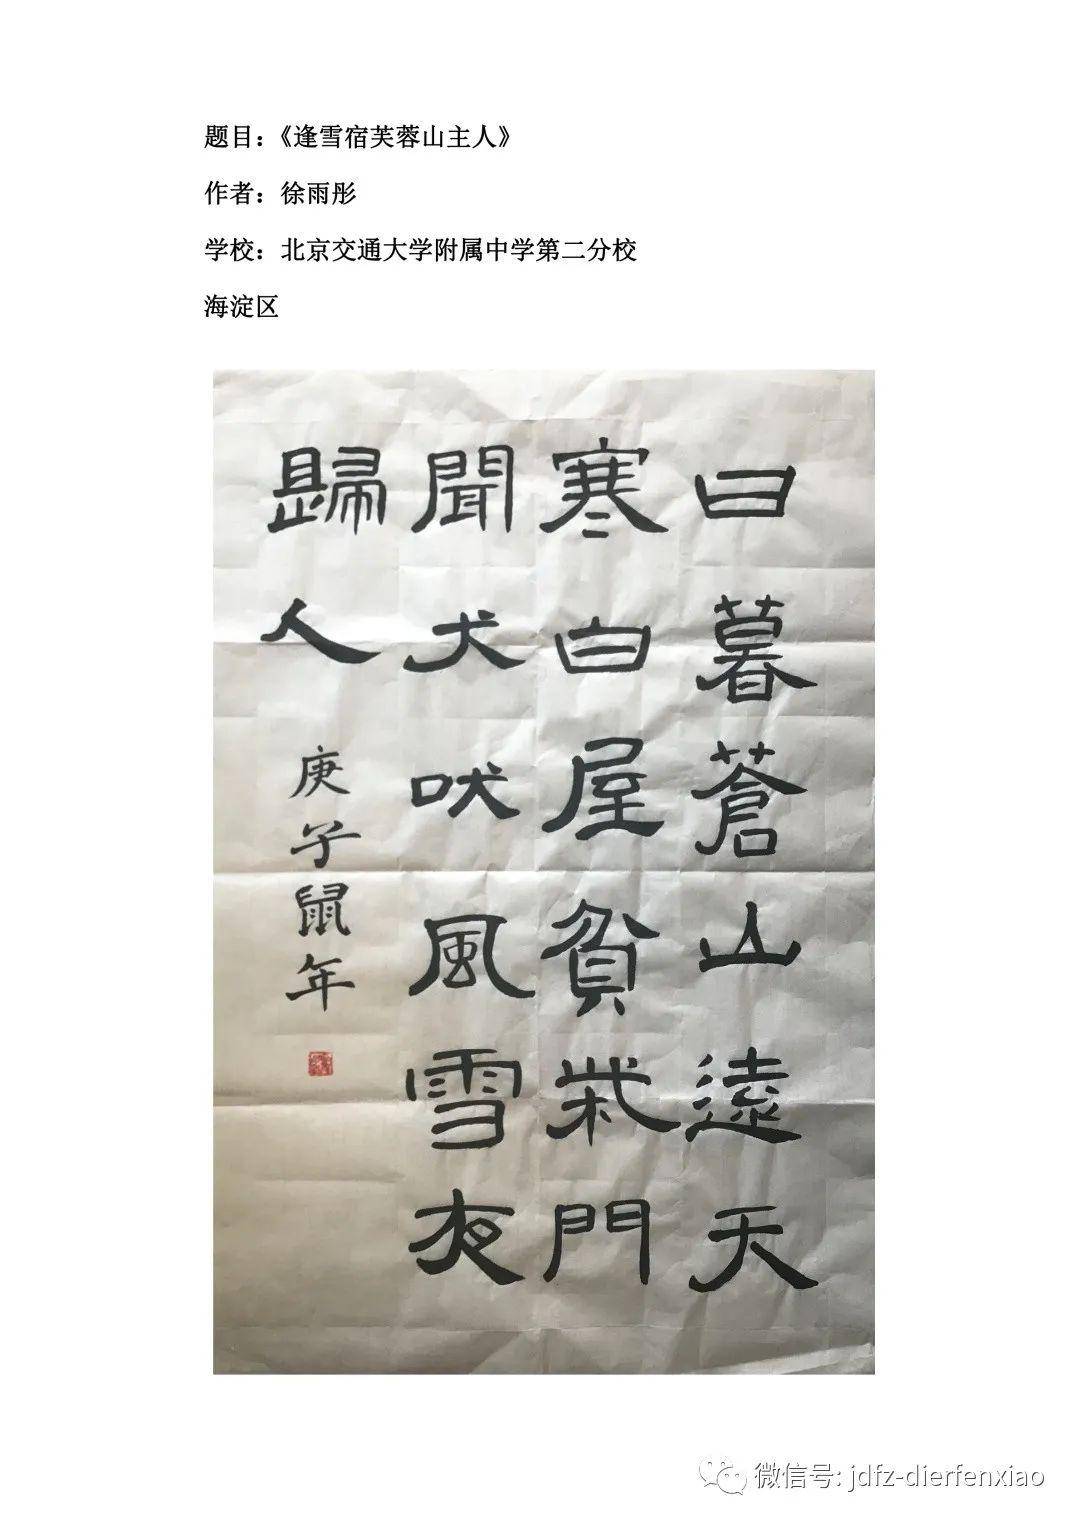 题目：《逢雪宿芙蓉山主人》
作者：徐雨彤
学校：北京交通大学附属中学第二分校
海淀区
日暮蒼山遠天
寒白屋貧柴門
聞犬吠風雪夜
歸人
庚子鼠年
微信号: jdfz-dierfenxiao